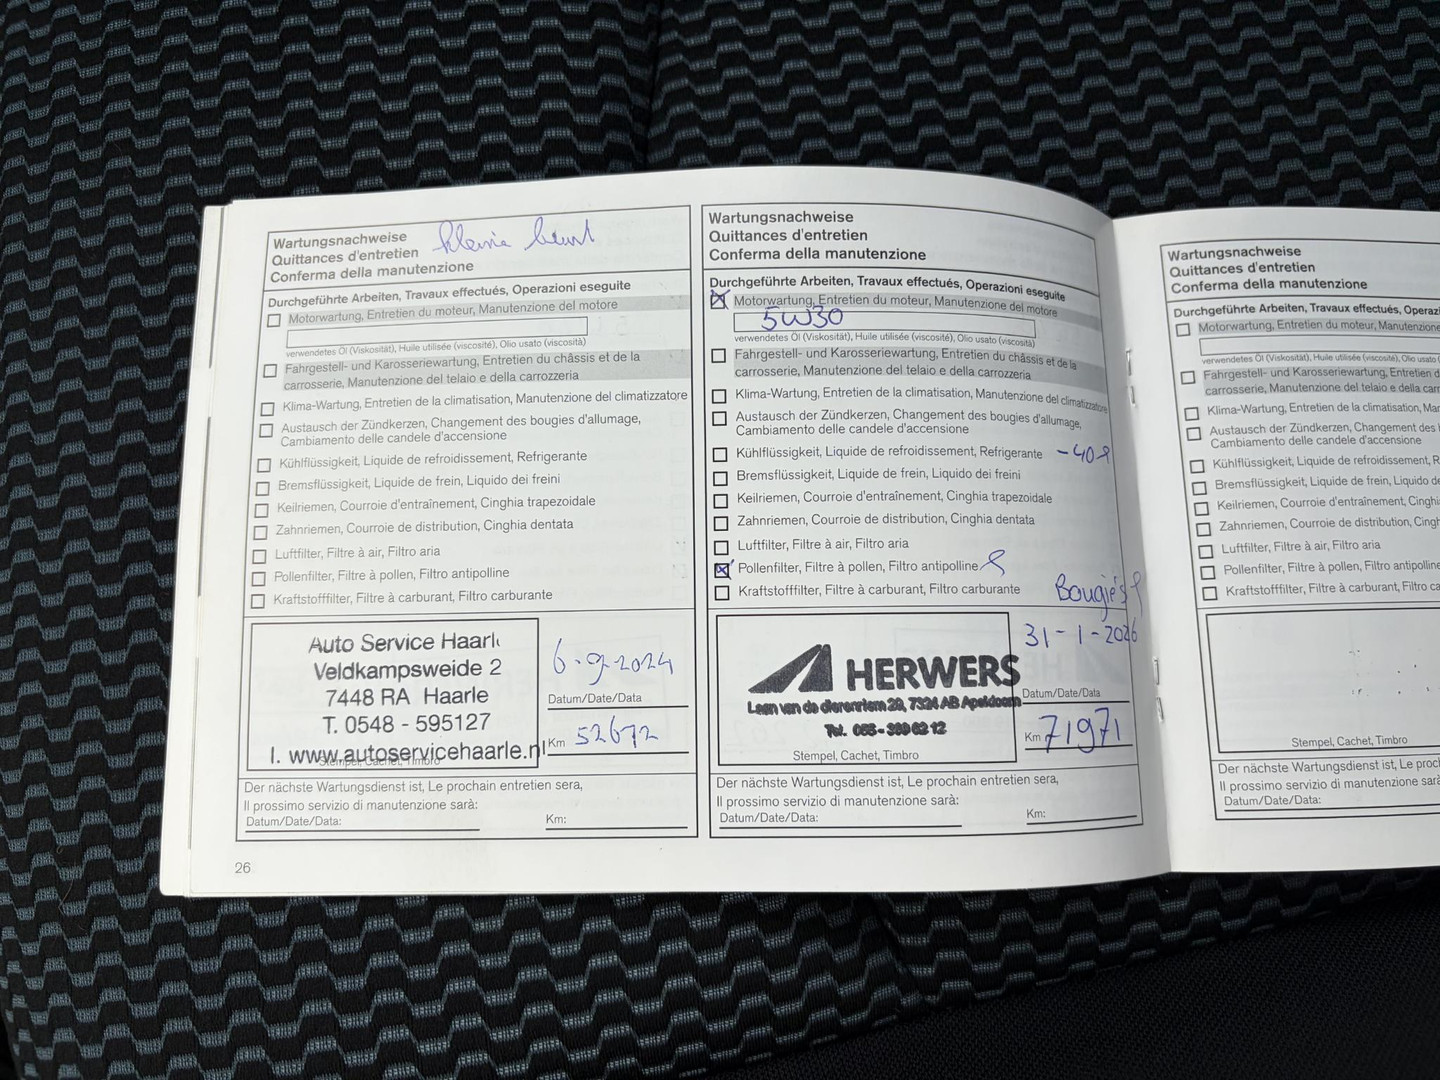 Wartungsnachweise
Quittances d'entretien
Conferma della manutenzione
kleine beurt
Durchgeführte Arbeiten, Travaux effectués, Operazioni eseguite
Motorwartung, Entretien du moteur, Manutenzione del motore
verwendetes Öl (Viskosität), Huile utilisée (viscosité), Olio usato (viscosità)
Fahrgestell- und Karosseriewartung, Entretien du châssis et de la
carrosserie, Manutenzione del telaio e della carrozzeria
Klima-Wartung, Entretien de la climatisation, Manutenzione del climatizzatore
Austausch der Zündkerzen, Changement des bougies d'allumage,
Cambiamento delle candele d'accensione
Kühlflüssigkeit, Liquide de refroidissement, Refrigerante
Bremsflüssigkeit, Liquide de frein, Liquido dei freini
Keilriemen, Courroie d'entraînement, Cinghia trapezoidale
Zahnriemen, Courroie de distribution, Cinghia dentata
Luftfilter, Filtre à air, Filtro aria
Pollenfilter, Filtre à pollen, Filtro antipolline
Kraftstofffilter, Filtre à carburant, Filtro carburante
Auto Service Haarle
Veldkampsweide 2
7448 RA Haarle
T. 0548 - 595127
I. www.autoservicehaarle.nl
Stempel, Cachet, Timbro
6-9-2024
Datum/Date/Data
Km 52672
Der nächste Wartungsdienst ist, Le prochain entretien sera,
Il prossimo servizio di manutenzione sarà:
Datum/Date/Data:
Km:
26
Wartungsnachweise
Quittances d'entretien
Conferma della manutenzione
Durchgeführte Arbeiten, Travaux effectués, Operazioni eseguite
Motorwartung, Entretien du moteur, Manutenzione del motore
5W30
verwendetes Öl (Viskosität), Huile utilisée (viscosité), Olio usato (viscosità)
Fahrgestell- und Karosseriewartung, Entretien du châssis et de la
carrosserie, Manutenzione del telaio e della carrozzeria
Klima-Wartung, Entretien de la climatisation, Manutenzione del climatizzatore
Austausch der Zündkerzen, Changement des bougies d'allumage,
Cambiamento delle candele d'accensione
Kühlflüssigkeit, Liquide de refroidissement, Refrigerante -40
Bremsflüssigkeit, Liquide de frein, Liquido dei freini
Keilriemen, Courroie d'entraînement, Cinghia trapezoidale
Zahnriemen, Courroie de distribution, Cinghia dentata
Luftfilter, Filtre à air, Filtro aria
Pollenfilter, Filtre à pollen, Filtro antipolline
Kraftstofffilter, Filtre à carburant, Filtro carburante
Bougies
HERWERS
Laan van de dierenriem 29, 7324 AB Apeldoorn
Stempel, Cachet, Timbro
31-1-2026
Datum/Date/Data
Km 71971
Der nächste Wartungsdienst ist, Le prochain entretien sera,
Il prossimo servizio di manutenzione sarà:
Datum/Date/Data:
Km:
Wartungsnachweise
Quittances d'entretien
Conferma della manutenzione
Durchgeführte Arbeiten, Travaux effectués,
Motorwartung, Entretien du moteur,
verwendetes Öl (Viskosität), Huile utilisée (viscosité), Olio usato
Fahrgestell- und Karosseriewartung, Entretien
carrosserie, Manutenzione del telaio e della
Klima-Wartung, Entretien de la climatisation,
Austausch der Zündkerzen, Changement des
Cambiamento delle candele d'accensione
Kühlflüssigkeit, Liquide de refroidissement,
Bremsflüssigkeit, Liquide de frein, Liquido
Keilriemen, Courroie d'entraînement,
Zahnriemen, Courroie de distribution,
Luftfilter, Filtre à air, Filtro aria
Pollenfilter, Filtre à pollen, Filtro
Kraftstofffilter, Filtre à carburant, Filtro
Stempel, Cachet, Timbro
Der nächste Wartungsdienst ist, Le
Il prossimo servizio di manutenzione
Datum/Date/Data: